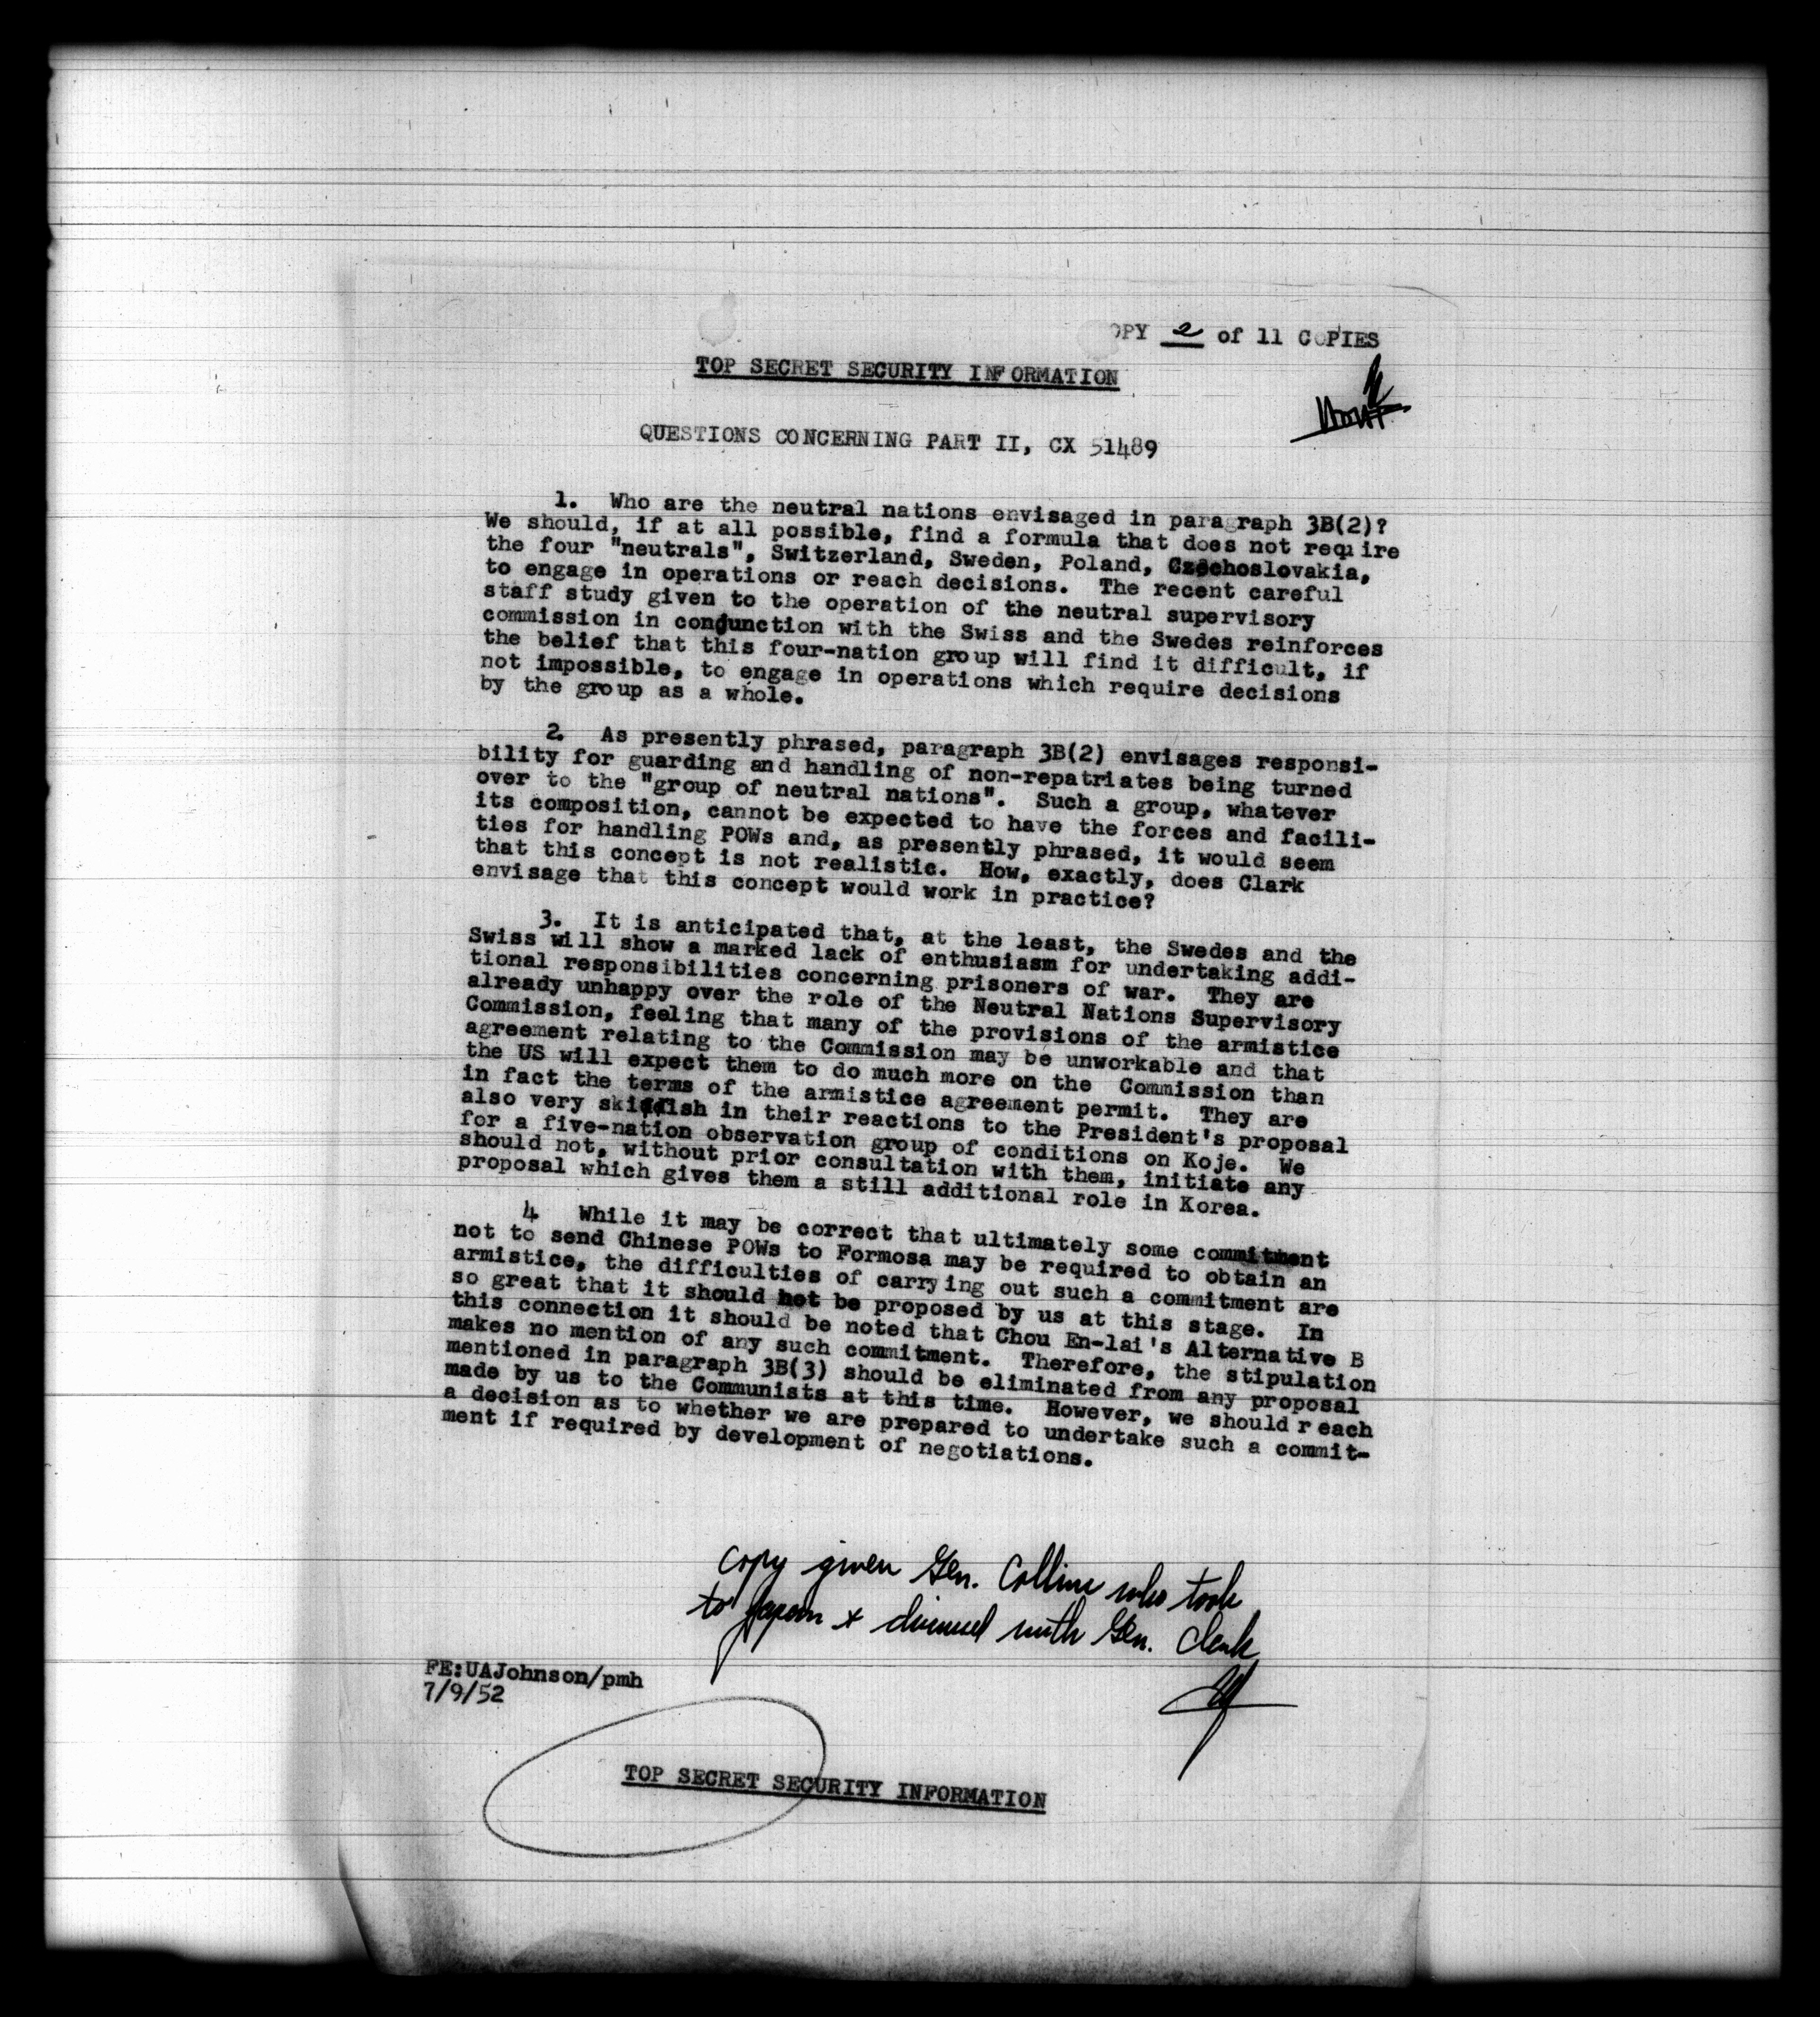 OPY 2 of 11 COPIES
TOP SECRET SECURITY INFORMATION
QUESTIONS CONCERNING PART II, CX 51489
1. Who are the neutral nations envisaged in paragraph 3B(2)?
We should, if at all possible, find a formula that does not require
the four "neutrals", Switzerland, Sweden, Poland, Czechoslovakia,
to engage in operations or reach decisions. The recent careful
staff study given to the operation of the neutral supervisory
commission in conjunction with the Swiss and the Swedes reinforces
the belief that this four-nation group will find it difficult, if
not impossible, to engage in operations which require decisions
by the group as a whole.
2. As presently phrased, paragraph 3B(2) envisages responsi-
bility for guarding and handling of non-repatriates being turned
over to the "group of neutral nations". Such a group, whatever
its composition, cannot be expected to have the forces and facili-
ties for handling POWs and, as presently phrased, it would seem
that this concept is not realistic. How, exactly, does Clark
envisage that this concept would work in practice?
3. It is anticipated that, at the least, the Swedes and the
Swiss will show a marked lack of enthusiasm for undertaking addi-
tional responsibilities concerning prisoners of war. They are
already unhappy over the role of the Neutral Nations Supervisory
Commission, feeling that many of the provisions of the armistice
agreement relating to the Commission may be unworkable and that
the US will expect them to do much more on the Commission than
in fact the terms of the armistice agreement permit. They are
also very skiddish in their reactions to the President's proposal
for a five-nation observation group of conditions on Koje. We
should not, without prior consultation with them, initiate any
proposal which gives them a still additional role in Korea.
4 While it may be correct that ultimately some commitment
not to send Chinese POWs to Formosa may be required to obtain an
armistice, the difficulties of carrying out such a commitment are
so great that it should not be proposed by us at this stage. In
this connection it should be noted that Chou En-lai's Alternative B
makes no mention of any such commitment. Therefore, the stipulation
mentioned in paragraph 3B(3) should be eliminated from any proposal
made by us to the Communists at this time. However, we should reach
a decision as to whether we are prepared to undertake such a commit-
ment if required by development of negotiations.
Copy given Gen. Collins who took
to Japan & discussed with Gen. Clark
FE:UAJohnson/pmh
7/9/52
TOP SECRET SECURITY INFORMATION